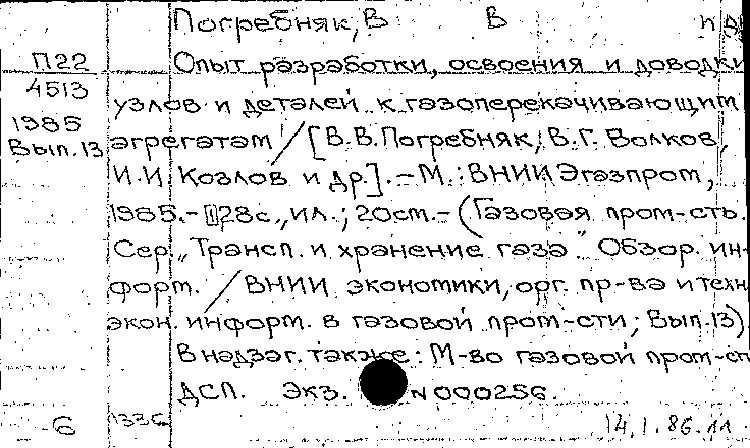 Погребняк, В В и др
П22 Опыт разработки, освоения и доводки
4513 узлов и деталей к газоперекачивающим
1985 агрегатам / [В.В.Погребняк, В.Г. Волков,
Вып.13 И.И. Козлов и др.]. – М. : ВНИИЭгазпром,
1985. – 28с., ил. ; 20см. – (Газовая пром-сть.
Сер. „Трансп. и хранение газа" Обзор. ин-
форм. / ВНИИ экономики, орг. пр-ва и техн.
экон. информ. в газовой пром-сти; Вып.13)
В надзаг. также: М-во газовой пром-сти
ДСП. Экз. N 000256.
6 1336 14.1.86.